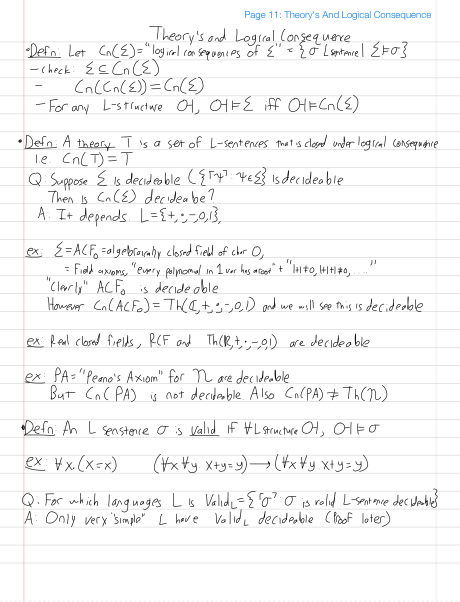 Page 11: Theory's And Logical Consequence
Theory's and Logical Consequence
• Defn: Let Cn(Σ)="logical consequences of Σ" = {σ Lsentence | Σ⊨σ}
- check: Σ⊆Cn(Σ)
- Cn(Cn(Σ))=Cn(Σ)
- For any L-structure 𝔄, 𝔄⊨Σ iff 𝔄⊨Cn(Σ)
• Defn: A theory T is a set of L-sentences that is closed under logical consequence
i.e. Cn(T)=T
Q: Suppose Σ is decideable ({⌜ψ⌝: ψ∈Σ} is decideable
Then is Cn(Σ) decideabe?
A: It depends. L={+,·,-,0,1},
ex: Σ=ACF₀=algebraically closed field of char 0,
= Field axioms, "every polynomial in 1 var has a root" + "1+1≠0, 1+1+1≠0, ....."
"Clearly" ACF₀ is decideable
However Cn(ACF₀)=Th(ℂ,+,·,-,0,1) and we will see this is decideable
ex: Real closed fields, RCF and Th(ℝ,+,·,-,0,1) are decideable
ex: PA="Peano's Axiom" for 𝔑 are decideable
But Cn(PA) is not decideable Also Cn(PA) ≠ Th(𝔑)
• Defn: An L senstence σ is valid if ∀L structure 𝔄, 𝔄⊨σ
ex: ∀x(x=x) (∀x∀y x+y=y)⟶(∀x∀y x+y=y)
Q: For which languages L is Valid_L={⌜σ⌝: σ is valid L-sentence decideable}
A: Only very "simple" L have Valid_L decideable (Proof later)